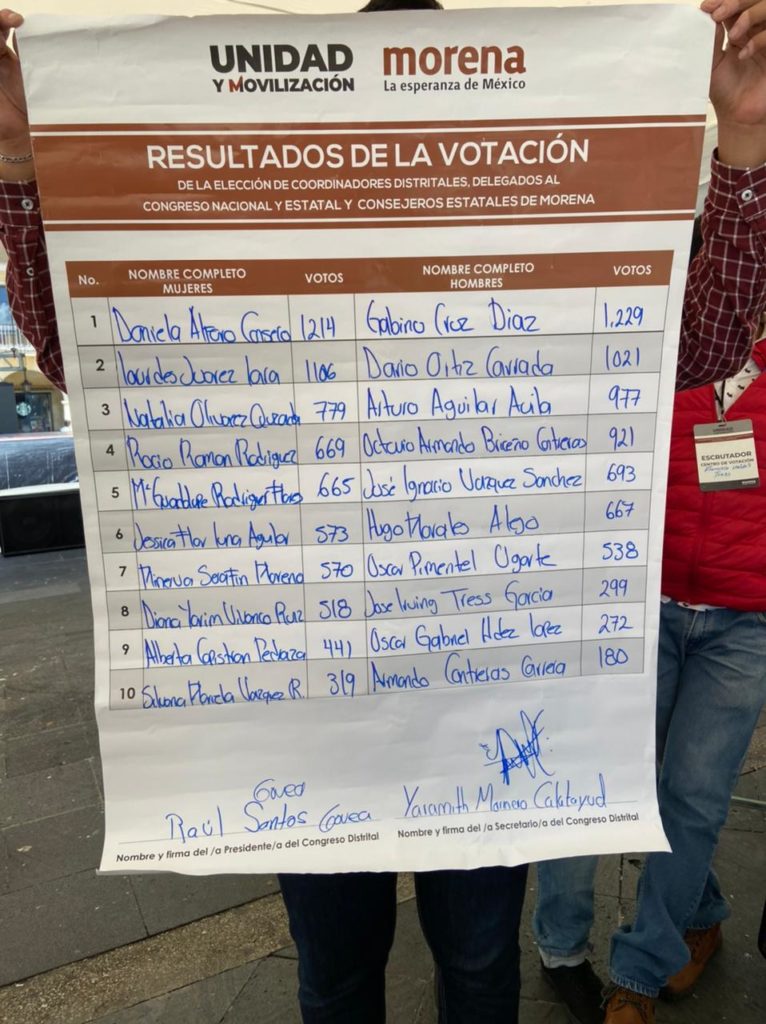 UNIDAD
Y MOVILIZACIÓN
morena
La esperanza de México
RESULTADOS DE LA VOTACIÓN
DE LA ELECCIÓN DE COORDINADORES DISTRITALES, DELEGADOS AL
CONGRESO NACIONAL Y ESTATAL Y CONSEJEROS ESTATALES DE MORENA
No. NOMBRE COMPLETO MUJERES VOTOS NOMBRE COMPLETO HOMBRES VOTOS
1 Daniela 1214 Gabino Cruz Diaz 1,229
2 Lourdes Juarez Lara 1106 Dario Ortiz Carrada 1021
3 Natalia Olivarez Quezada 779 Arturo Aguilar 977
4 Rocio Ramon Rodriguez 669 Octavio Armando Briceño Contreras 921
5 Ma Guadalupe Rodriguez 665 José Ignacio Vazquez Sanchez 693
6 Jessica Flor Luna Aguilar 573 Hugo Morales Alejo 667
7 Minerva Serafin Moreno 570 Oscar Pimentel Ugarte 538
8 Diana Yarim Vivanco Ruiz 518 Jose Irving Tress Garcia 299
9 Alberta Pedraza 441 Oscar Gabriel Hdez Lopez 272
10 Silvana Vazquez R. 319 Armando Contreras Carrera 180
Govea
Raúl Santos Govea
Yaramith Calatayud
Nombre y firma del /a Presidente/a del Congreso Distrital
Nombre y firma del /a Secretario/a del Congreso Distrital
ESCRUTADOR
CENTRO DE VOTACIÓN